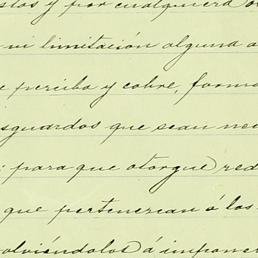 stos y por cualquiera o
ni limitación alguna a
e perciba y cobre, forma
sguardos que sean nec
: para que otorgue red
que pertenezcan á los
olviéndolos á imponer